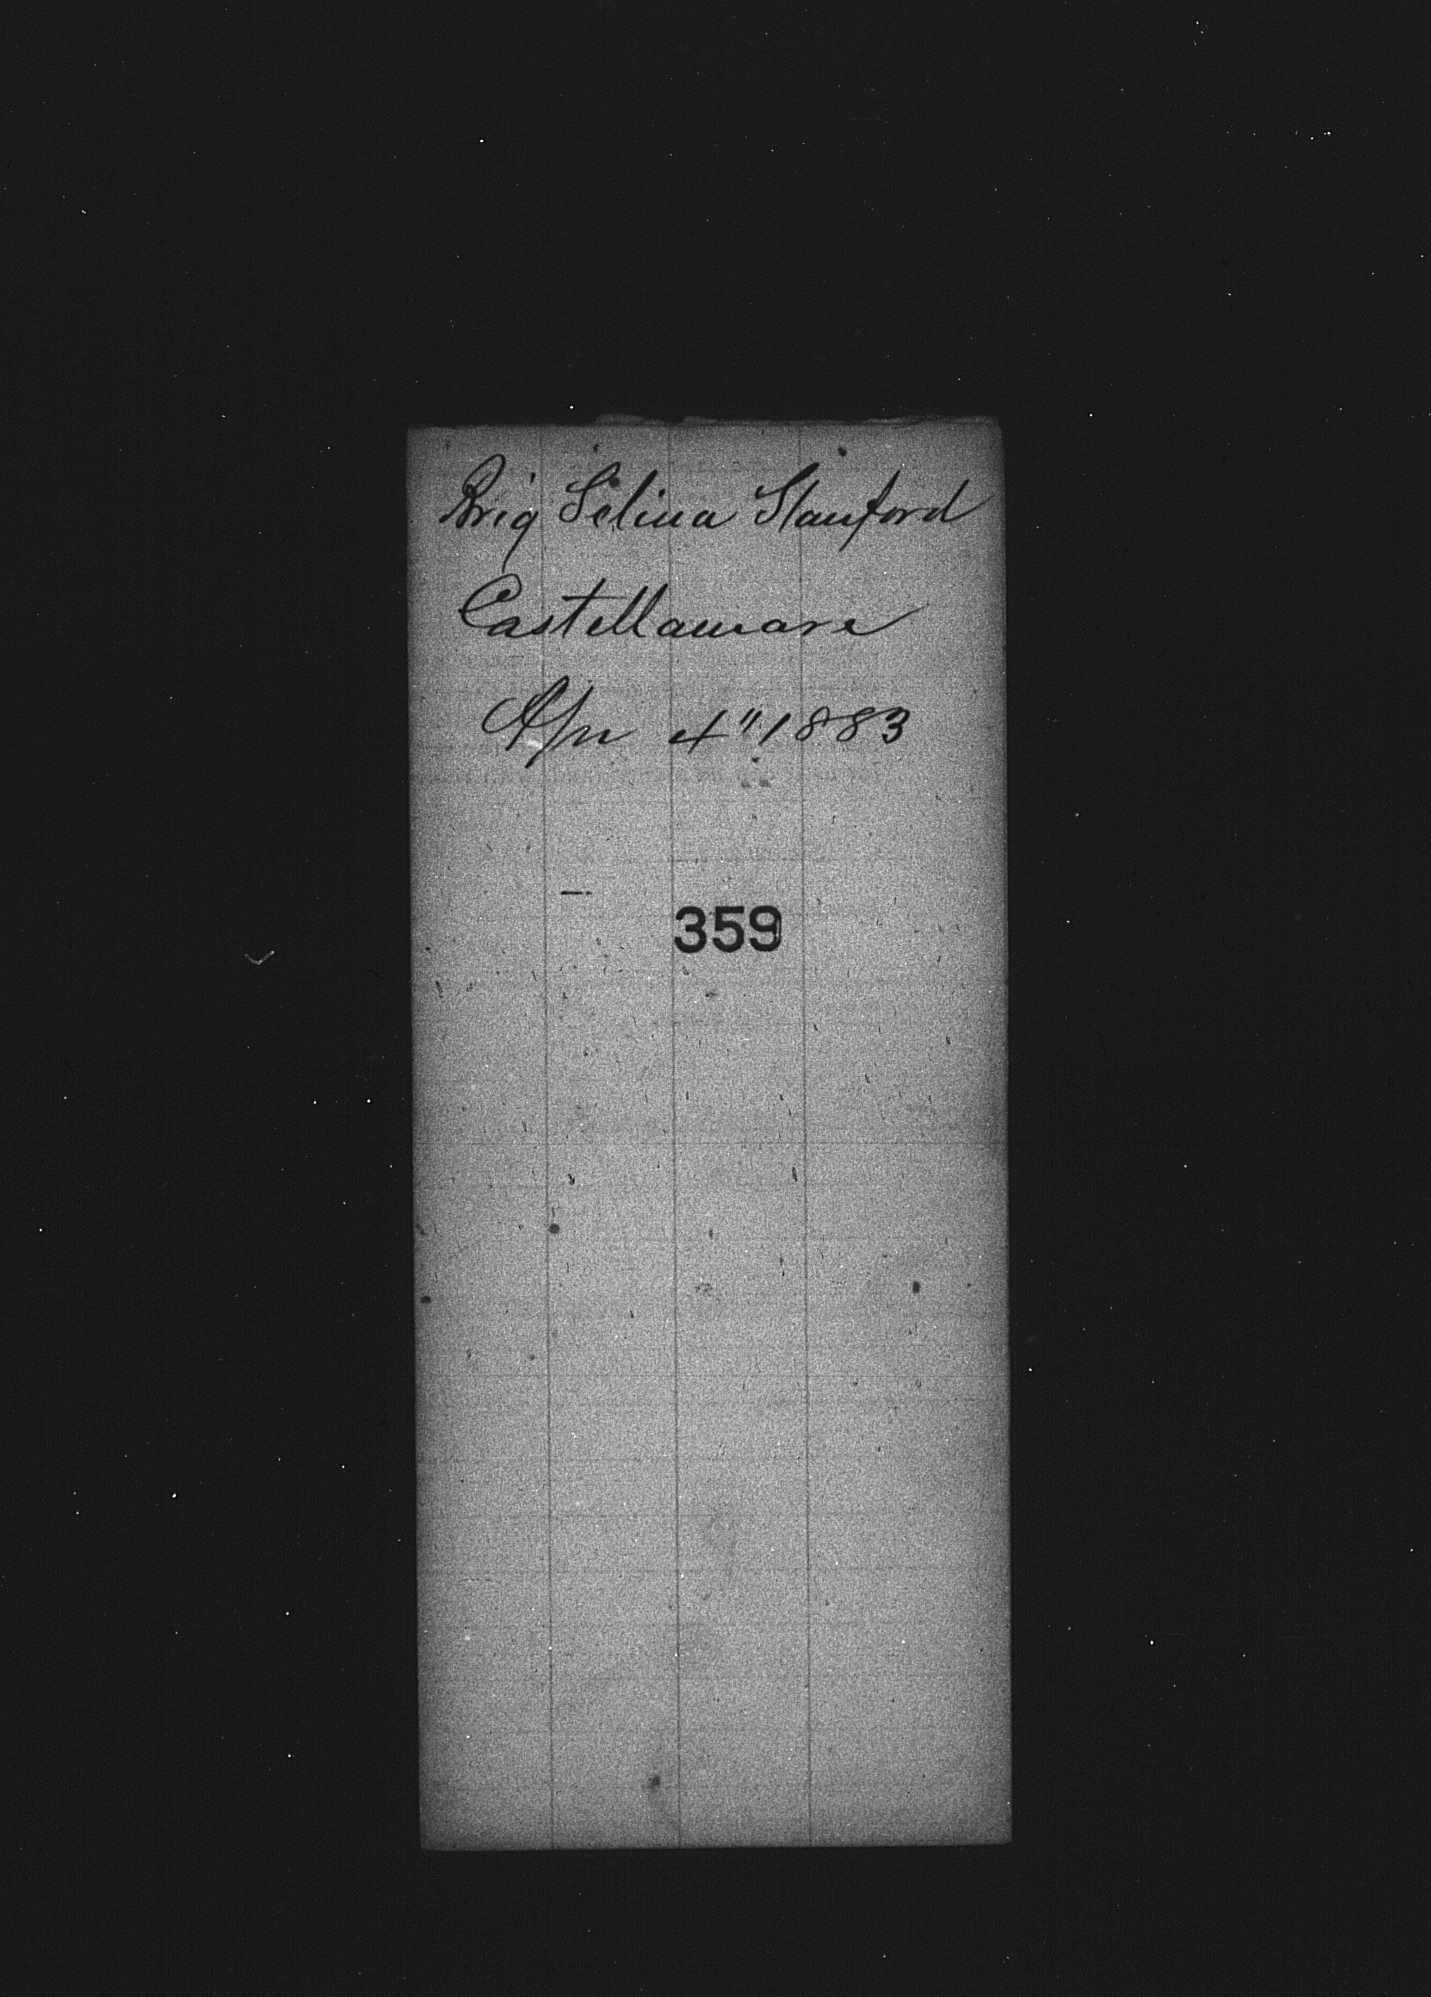 Brig Selina Stanford
Castellamare
Apr 4" 1883
359